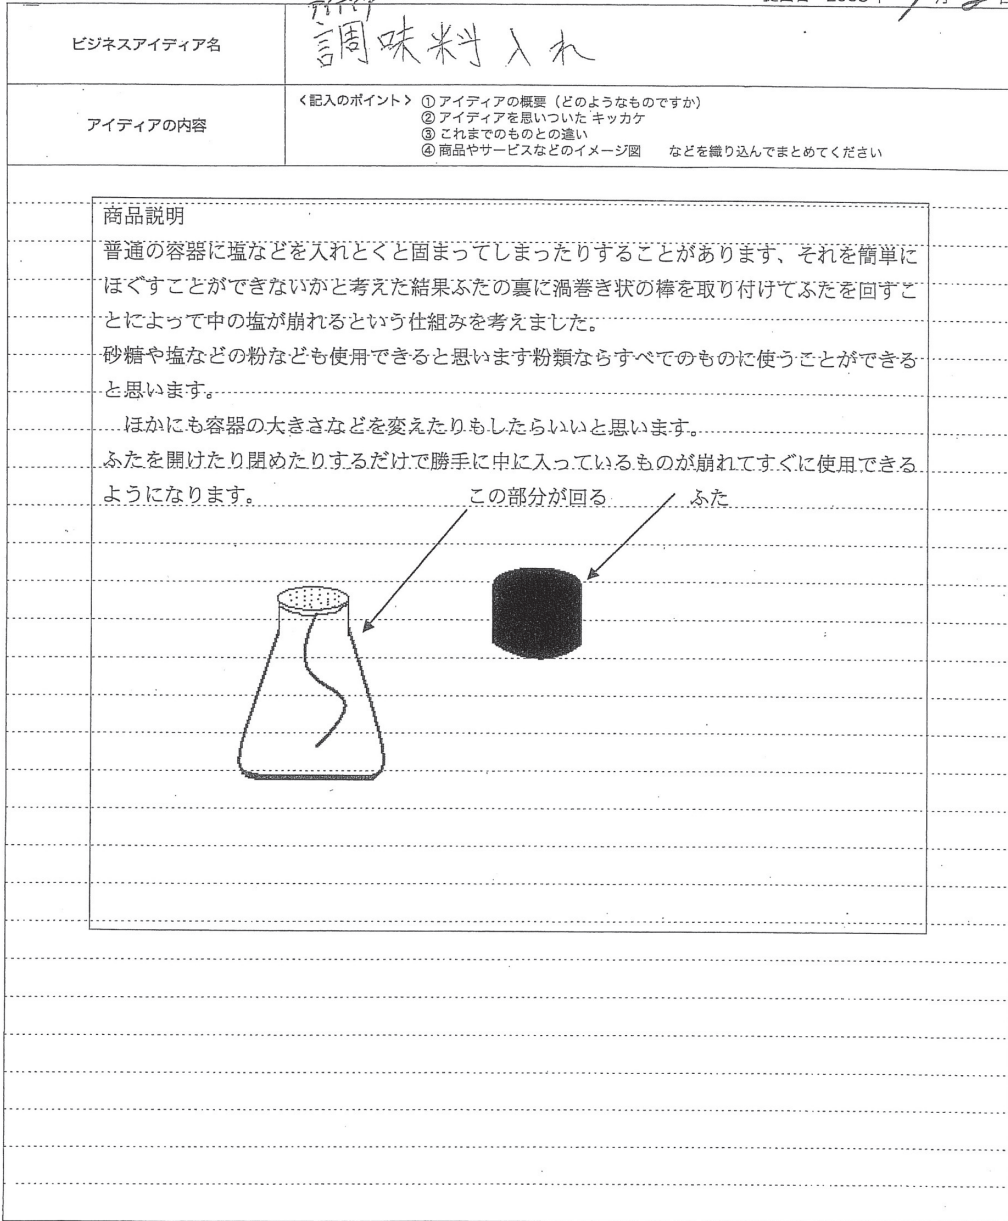 ビジネスアイディア名
アイディア
調味料入れ
アイディアの内容
<記入のポイント> ① アイディアの概要（どのようなものですか）
② アイディアを思いついた キッカケ
③ これまでのものとの違い
④ 商品やサービスなどのイメージ図　　などを織り込んでまとめてください
商品説明
普通の容器に塩などを入れとくと固まってしまったりすることがあります、それを簡単に
ほぐすことができないかと考えた結果ふたの裏に渦巻き状の棒を取り付けてふたを回すこ
とによって中の塩が崩れるという仕組みを考えました。
砂糖や塩などの粉なども使用できると思います粉類ならすべてのものに使うことができる
と思います。
　ほかにも容器の大きさなどを変えたりもしたらいいと思います。
ふたを開けたり閉めたりするだけで勝手に中に入っているものが崩れてすぐに使用できる
ようになります。
この部分が回る　　ふた